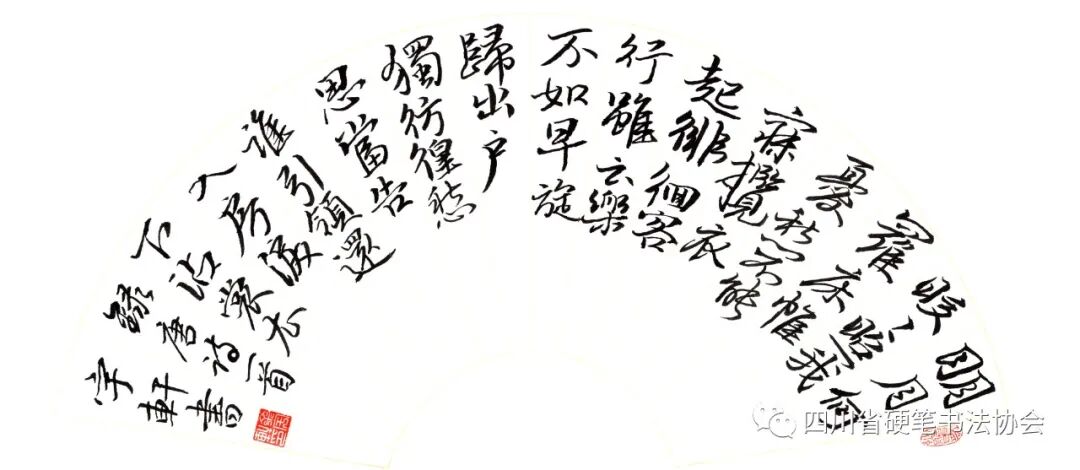 明月何
皎々照我
羅床惟
憂愁不能
寐攬衣
起徘徊客
行雖云樂
不如早旋
歸出户
獨彷徨愁
思當告
誰引領還
入房淚
下沾裳衣
錄唐詩一首
宇軒書
四川省硬笔书法协会